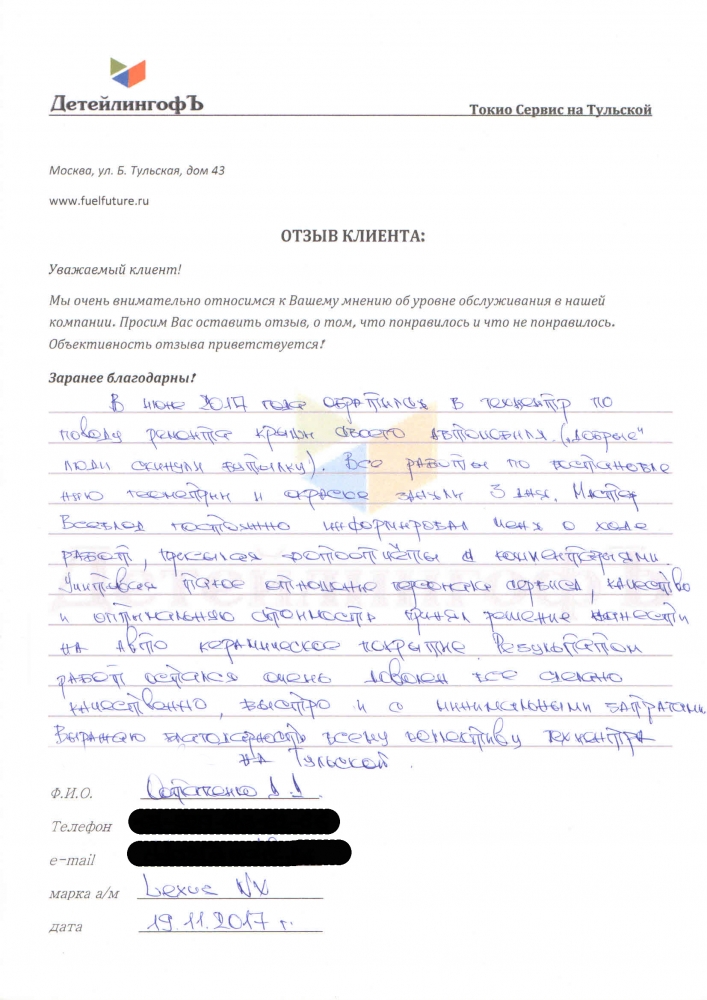 ДетейлингофЪ
Токио Сервис на Тульской
Москва, ул. Б. Тульская, дом 43
www.fuelfuture.ru
ОТЗЫВ КЛИЕНТА:
Уважаемый клиент!
Мы очень внимательно относимся к Вашему мнению об уровне обслуживания в нашей
компании. Просим Вас оставить отзыв, о том, что понравилось и что не понравилось.
Объективность отзыва приветствуется!
Заранее благодарны!
В июне 2017 года обратился в техцентр по
поводу ремонта крыши своего автомобиля. („добрые"
люди скинули бутылку). Все работы по востановле
нию геометрии и окраске заняли 3 дня. Мастер
Всеволод постоянно информировал меня о ходе
работ, присылая фотоотчёты с комментариями.
Учитывая такое отношение персонала сервиса, качество
и оптимальную стоимость принял решение нанести
на авто керамическое покрытие Результатом
работ остался очень доволен все сделано
качественно, быстро и с минимальными затратами.
Выражаю благодарность всему колективу техцентра
на Тульской.
Ф.И.О. Д.Д.
Телефон
e-mail
марка а/м Lexus NX
дата 19.11.2017 г.